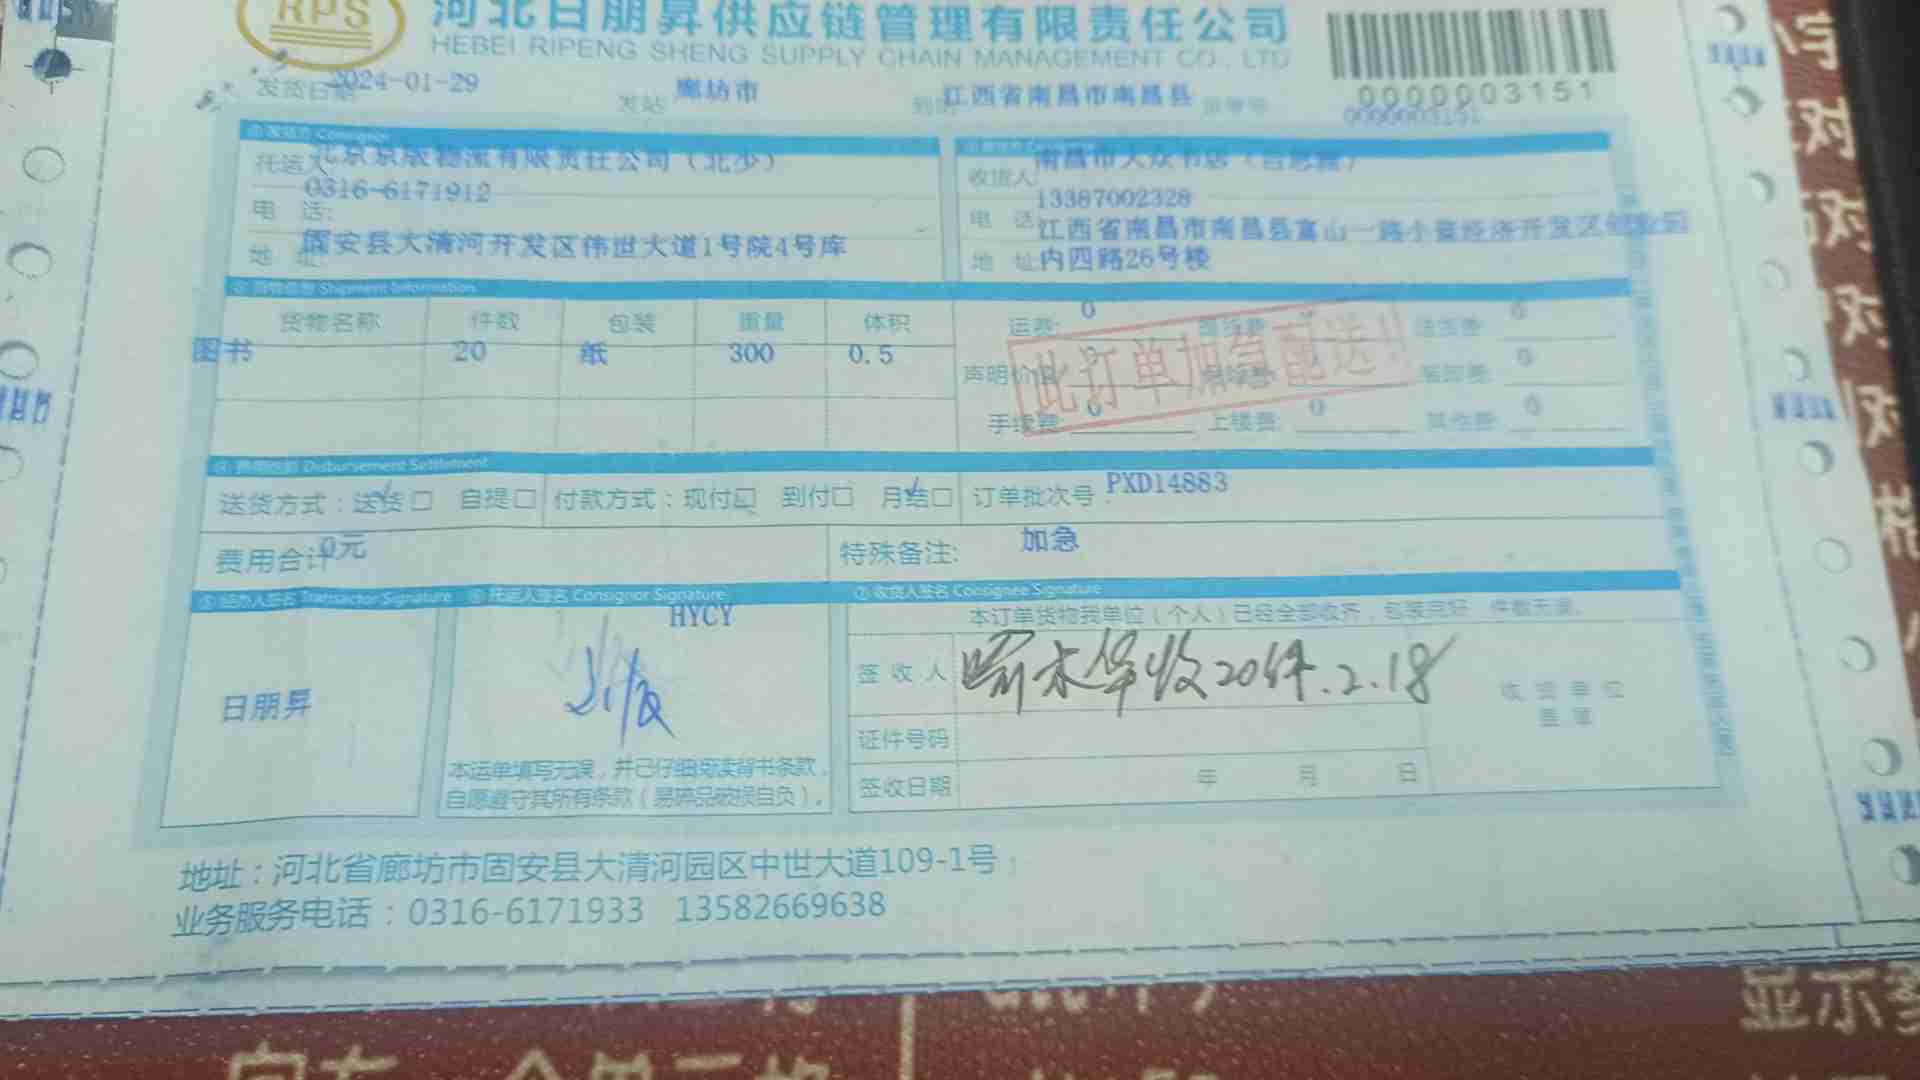 RPS
河北日朋昇供应链管理有限责任公司
HEBEI RIPENG SHENG SUPPLY CHAIN MANAGEMENT CO., LTD
0000003151
发货日期 2024-01-29 发站 廊坊市 到站 江西省南昌市南昌县 货单号 0000003151
①发货方 Consignor
托运人 北京京版物流有限责任公司（北少）
电 话: 0316-6171912
地 址 固安县大清河开发区伟世大道1号院4号库
收货人: 南昌市大众书店
电 话 13387002328
地 址 江西省南昌市南昌县富山一路小蓝经济开发区创业园
内四路26号楼
Shipment Information
货物名称 件数 包装 重量 体积
图书 20 纸 300 0.5
运费: 0 0
声明价值 0
手续费: 0 上楼费: 0 其他费: 0
此打单加急配送!
Disbursement Settlement
送货方式：送货□ 自提□ 付款方式：现付□ 到付□ 月结□ 订单批次号: PXD14883
费用合计 0元 特殊备注: 加急
⑤经办人签名 Transactor Signature ⑥托运人签名 Consignor Signature ⑦收货人签名 Consignee Signature
HYCY
本订单货物我单位（个人）已经全部收齐，包装完好，件数无误。
日朋昇
签 收 人 收 2024.2.18
收 货 单 位
盖 章
证件号码
签收日期 年 月 日
本运单填写无误，并已仔细阅读背书条款，
自愿遵守其所有条款（易碎品破损自负）。
地址：河北省廊坊市固安县大清河园区中世大道109-1号
业务服务电话：0316-6171933 13582669638
显示